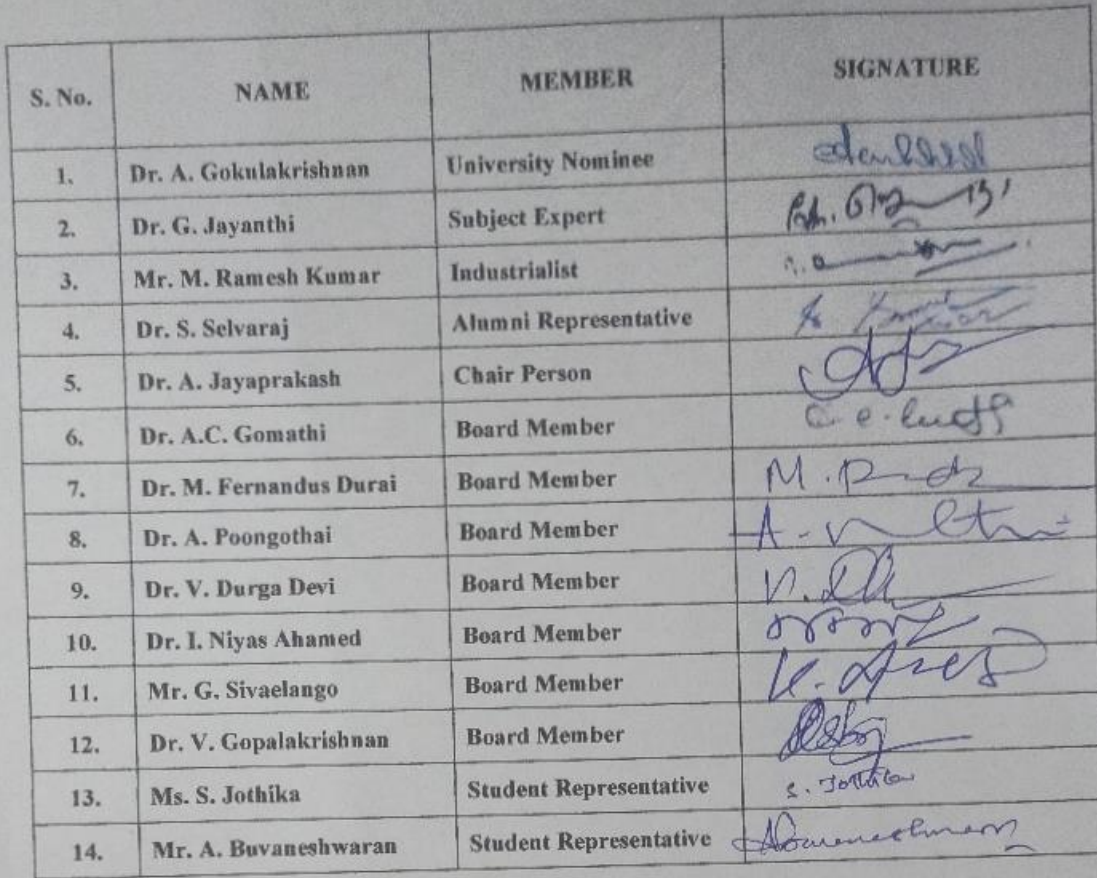 S. No. NAME MEMBER SIGNATURE
1. Dr. A. Gokulakrishnan University Nominee
2. Dr. G. Jayanthi Subject Expert
3. Mr. M. Ramesh Kumar Industrialist
4. Dr. S. Selvaraj Alumni Representative
5. Dr. A. Jayaprakash Chair Person
6. Dr. A.C. Gomathi Board Member
7. Dr. M. Fernandus Durai Board Member
8. Dr. A. Poongothai Board Member
9. Dr. V. Durga Devi Board Member
10. Dr. I. Niyas Ahamed Board Member
11. Mr. G. Sivaelango Board Member
12. Dr. V. Gopalakrishnan Board Member
13. Ms. S. Jothika Student Representative S. Jothika
14. Mr. A. Buvaneshwaran Student Representative